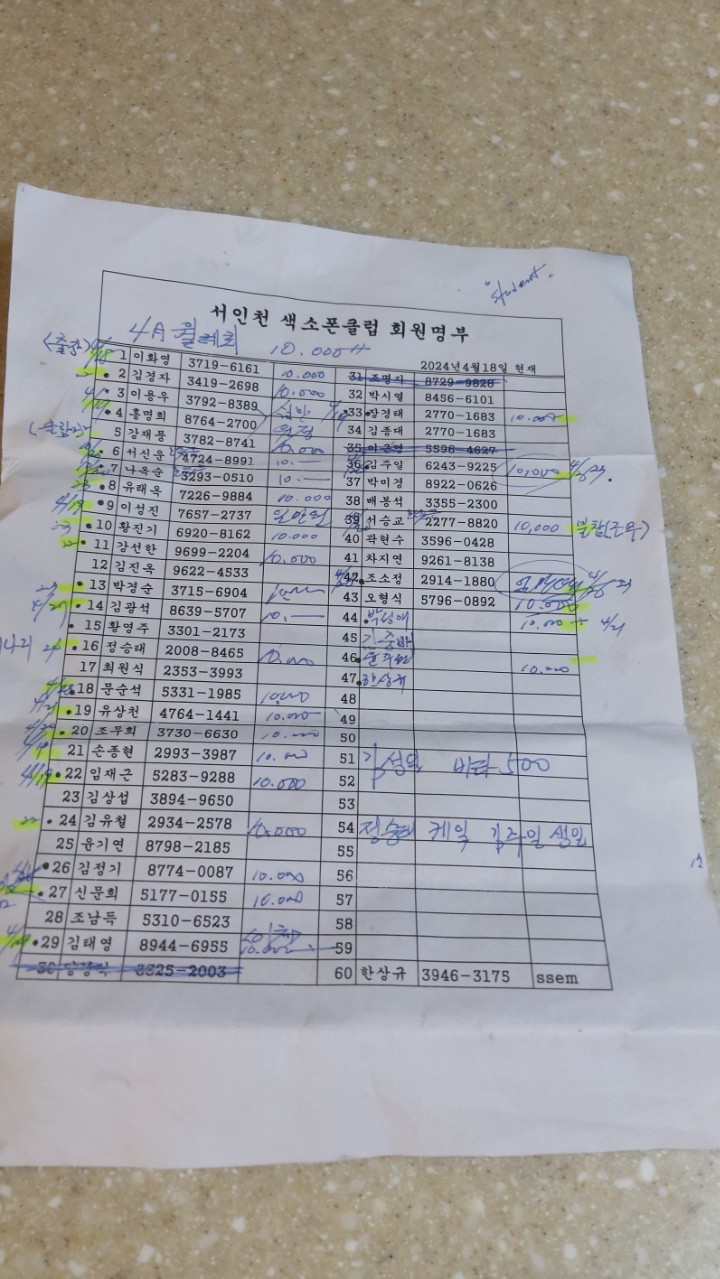 "student"
서인천 색소폰클럽 회원명부
4A 월례회 10.000
2024년4월18일 현재
1 이화영 3719-6161
2 김경자 3419-2698 10.000
3 이용우 3792-8389 10.000
4 홍명희 8764-2700
5 강재풍 3782-8741 10.000
6 서신운 4724-8991 10.—
7 나옥순 3293-0510 10.—
8 유래옥 7226-9884 10.000
9 이성진 7657-2737 일만원
10 황진기 6920-8162 10.000
11 강선한 9699-2204 10.000
12 김진옥 9622-4533
13 박경순 3715-6904
14 김광석 8639-5707 10.—
15 황영주 3301-2173
16 정승태 2008-8465 10.000
17 최원식 2353-3993
18 문순석 5331-1985 10.000
19 유상천 4764-1441 10.000
20 조무희 3730-6630 10.000
21 손종현 2993-3987 10.000
22 임재근 5283-9288 10.000
23 김상섭 3894-9650
24 김유철 2934-2578 10.000
25 윤기연 8798-2185
26 김정기 8774-0087 10.000
27 신문희 5177-0155 10.000
28 조남득 5310-6523
29 김태영 8944-6955 10.000
30 3325-2003
31 조명자 8729-9828
32 박시열 8456-6101
33 장경태 2770-1683 10.000
34 김종대 2770-1683
35 5598-4627
36 김주일 6243-9225 10,000
37 박미경 8922-0626
38 배봉석 3355-2300
39 서승교 2277-8820 10,000 불참(근무)
40 곽현수 3596-0428
41 차지연 9261-8138
42 조소정 2914-1880
43 오형식 5796-0892 10.000
44 10.000 4/21
45
46 10.000
47
48
49
50
51 김성일 500
52
53
54 정승태 케익 김주일 생일
55
56
57
58
59
60 한상규 3946-3175 ssem